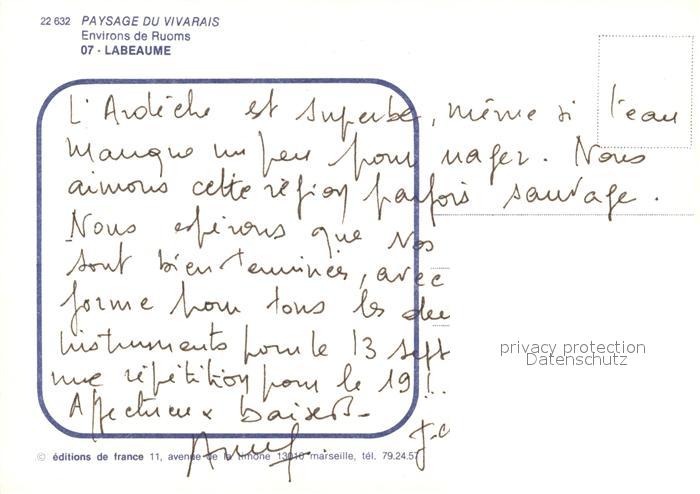 22 632 PAYSAGE DU VIVARAIS
Environs de Ruoms
07 - LABEAUME
L'Ardèche est superbe, même si l'eau
manque un peu pour nager. Nous
aimons cette région parfois sauvage.
Nous espérons que vos
sont bien terminées, avec
forme pour tous les deux
instruments pour le 13 sept
une répétition pour le 19!..
Affectueux baisers
J.C
privacy protection
Datenschutz
© éditions de france 11, avenue de la timone 13010 marseille, tél. 79.24.57